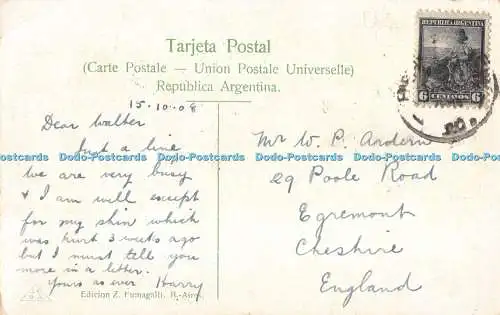 Tarjeta Postal
(Carte Postale — Union Postale Universelle)
Republica Argentina.
REPUBLICA ARGENTINA
6 CENTAVOS 6
15.10.08
Dear Walter
Just a line
we are very busy
& I am well except
for my shin which
was hurt 3 weeks ago
but I must tell you
more in a letter.
yours as ever Harry
Mr W. P. Ardern
29 Poole Road
Egremont
Cheshire
England
Edicion Z. Fumagalli. B.-Aires.
Dodo-Postcards Dodo-Postcards Dodo-Postcards Dodo-Postcards Dodo-Postcards Dodo-Postcards